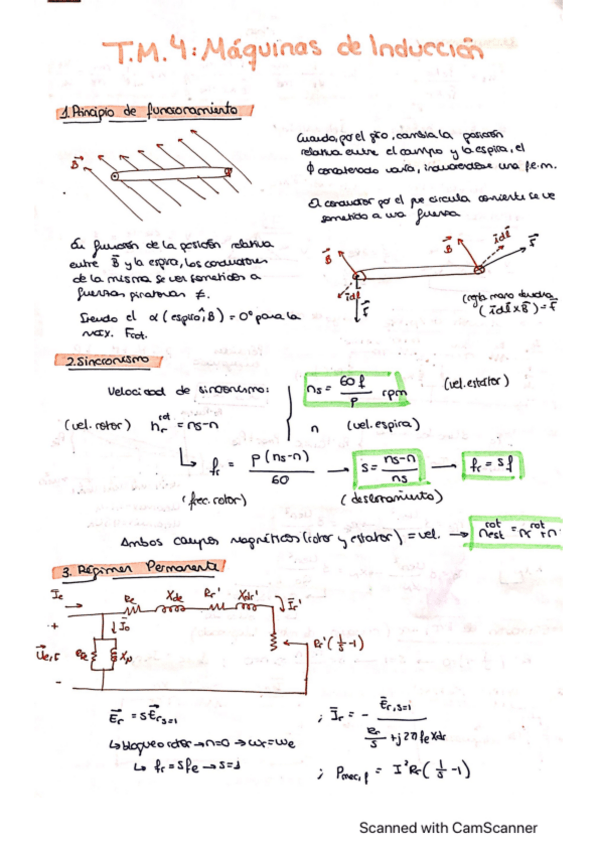 T.M.4: Máquinas de Inducción
1. Principio de funcionamiento
Cuando, por el giro, cambia la posición
relativa entre el campo y la espira, el
ϕ concatenado varía, induciéndose una f.e.m.
El conductor por el que circula corriente se ve
sometido a una fuerza
B⃗
En función de la posición relativa
entre B⃗ y la espira, los conductores
de la misma se ven sometidos a
fuerzas giratorias ≠.
Siendo el α (espira^B) = 0° para la
máx. Frot.
B⃗
i dl⃗
f⃗
B⃗
i dl⃗
f⃗
(regla mano derecha
(i dl⃗ x B⃗) = f⃗
2. Sincronismo
Velocidad de sincronismo:
ns = 60f / P rpm
(vel. estator)
(vel. rotor) nr^rot = ns-n
n (vel. espira)
fr = P(ns-n) / 60 → s = ns-n / ns → fr = sf
(frec. rotor)
(deslizamiento)
Ambos campos magnéticos (rotor y estator) = vel. → nest^rot = nr^rot + n
3. Régimen Permanente
Ie Re Xde Rr' Xdr' Ir'
+ I0
Ue,f Xμ Rr'(1/s-1)
-
Er = sEr,s=1
; Ir = - Er,s=1 / Rr/s + j2πfeXdr
↳ bloqueo rotor → n=0 → ωr=ωe
↳ fr = sfe → s=1
; Pmec,f = I²Rr(1/s-1)
Scanned with CamScanner